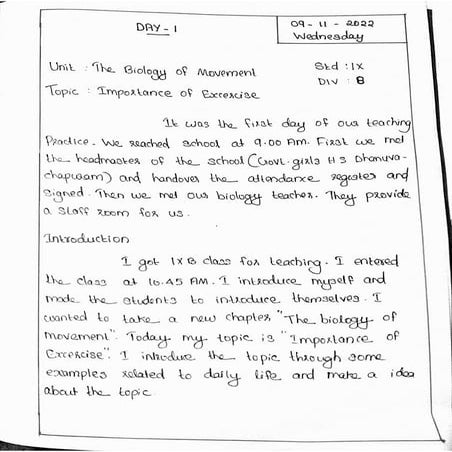 DAY - 1
09 - 11 - 2022
Wednesday
Unit : The Biology of Movement
Std : IX
Topic : Importance of Excercise
DIV : B
It was the first day of our teaching
Practice. We reached school at 9.00 AM. First we met
the headmaster of the school (Govt. girls H S Dhanuva-
chapuram) and handover the attendance register and
signed. Then we met our biology teacher. They provide
a staff room for us.
Introduction
I got IX B class for teaching. I entered
the class at 10.45 AM. I introduce myself and
made the students to introduce themselves. I
wanted to take a new chapter "The biology of
movement". Today my topic is "Importance of
Excercise". I introduce the topic through some
examples related to daily life and make a idea
about the topic.